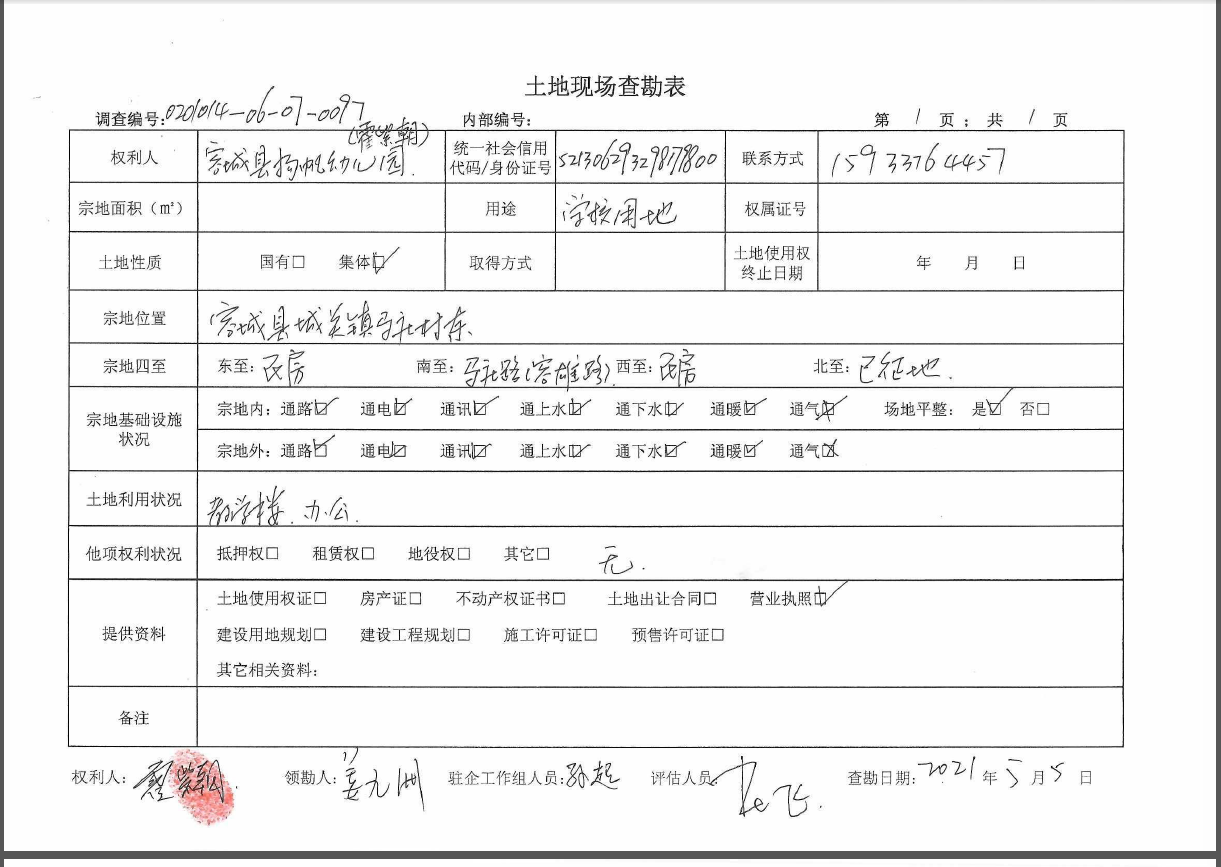 土地现场查勘表
调查编号:0201014-06-07-0097 内部编号: 第 1 页; 共 1 页
(霍紫朝)
权利人 容城县扬帆幼儿园. 统一社会信用代码/身份证号 联系方式 15933764457
宗地面积（㎡） 用途 学校用地 权属证号
土地性质 国有□ 集体☑ 取得方式 土地使用权终止日期 年 月 日
宗地位置 容城县城关镇马社村东.
宗地四至 东至: 民房 南至: 马社路(容雄路). 西至: 民房 北至: 已征地.
宗地基础设施状况 宗地内: 通路☑ 通电☑ 通讯☑ 通上水☑ 通下水☑ 通暖☑ 通气☒ 场地平整: 是☑ 否□
宗地外: 通路☑ 通电☑ 通讯☑ 通上水☑ 通下水☑ 通暖☑ 通气☒
土地利用状况 教学楼、办公.
他项权利状况 抵押权□ 租赁权□ 地役权□ 其它□ 无.
提供资料 土地使用权证□ 房产证□ 不动产权证书□ 土地出让合同□ 营业执照☑
建设用地规划□ 建设工程规划□ 施工许可证□ 预售许可证□
其它相关资料:
备注
权利人: 霍紫朝. 领勘人: 姜九洲 驻企工作组人员: 孙超 评估人员: 飞. 查勘日期: 2021 年 5 月 5 日